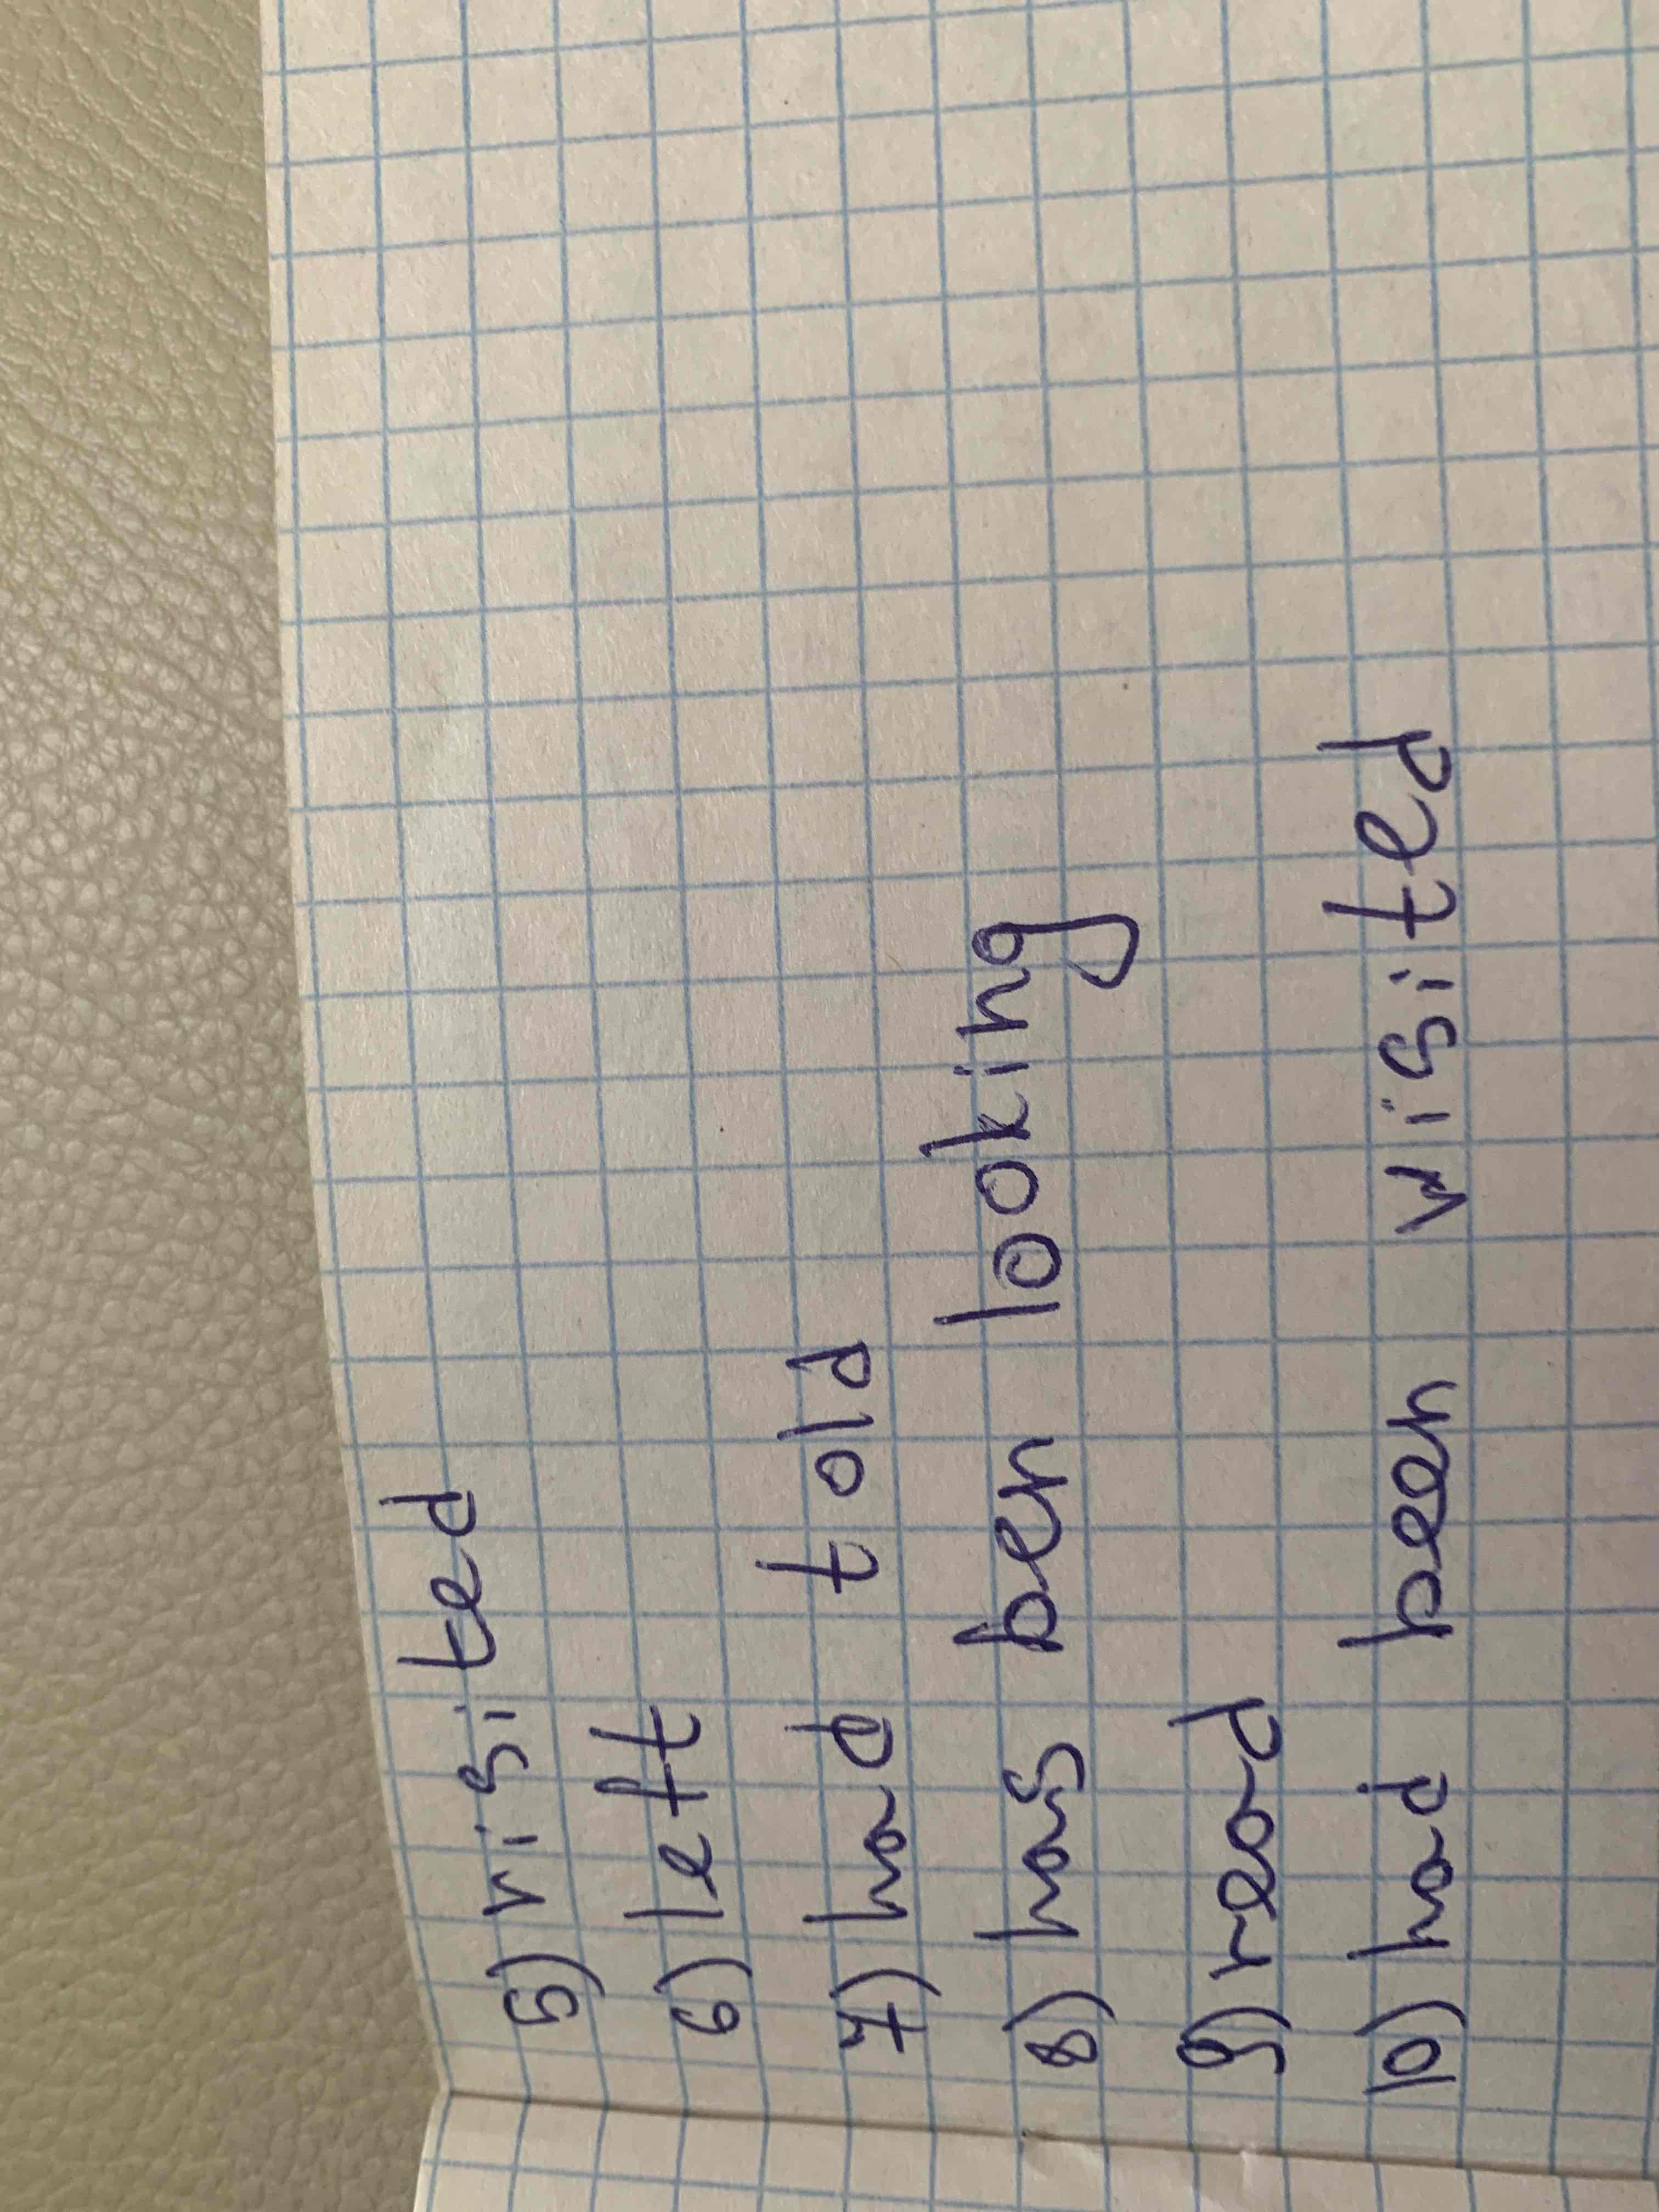 5) visited
6) left
7) had told
8) has ben looking
9) read
10) had been visited